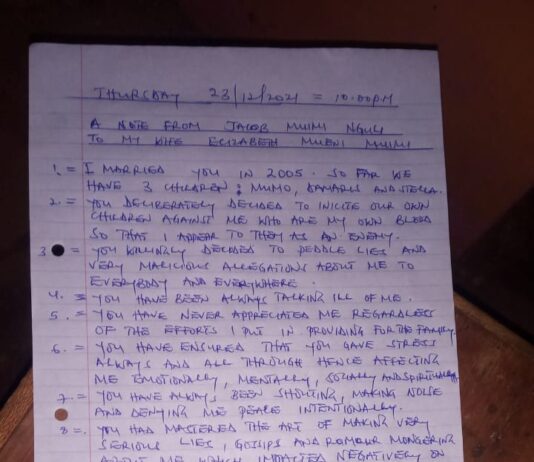 THURSDAY 23/12/2021 = 10.00PM
A NOTE FROM JACOB MWIMI NGULI
TO MY WIFE ELIZABETH MUENI MWIMI
1. = I MARRIED YOU IN 2005. SO FAR WE
HAVE 3 CHILDREN: MUMO, DAMARIS AND STELLA.
2. = YOU DELIBERATELY DECIDED TO INICITE OUR OWN
CHILDREN AGAINST ME WHO ARE MY OWN BLOOD
SO THAT I APPEAR TO THEM AS AN ENEMY.
3 = YOU WILLINGLY DECIDED TO PEDDLE LIES AND
VERY MALICIOUS ALLEGATIONS ABOUT ME TO
EVERYBODY AND EVERYWHERE.
4. = YOU HAVE BEEN ALWAYS TALKING ILL OF ME.
5. = YOU HAVE NEVER APPRECIATED ME REGARDLESS
OF THE EFFORTS I PUT IN PROVIDING FOR THE FAMILY.
6. = YOU HAVE ENSURED THAT YOU GAVE STRESS
ALWAYS AND ALL THROUGH HENCE AFFECTING
ME EMOTIONALLY, MENTALLY, SOCIALLY AND SPIRITUALLY.
7. = YOU HAVE ALWAYS BEEN SHOUTING, MAKING NOISE
AND DENYING ME PEACE INTENTIONALLY.
8 = YOU HAD MASTERED THE ART OF MAKING VERY
SERIOUS LIES, GOSSIPS AND ROMOUR MONGERING
ABOUT ME WHICH IMPACTED NEGATIVELY ON